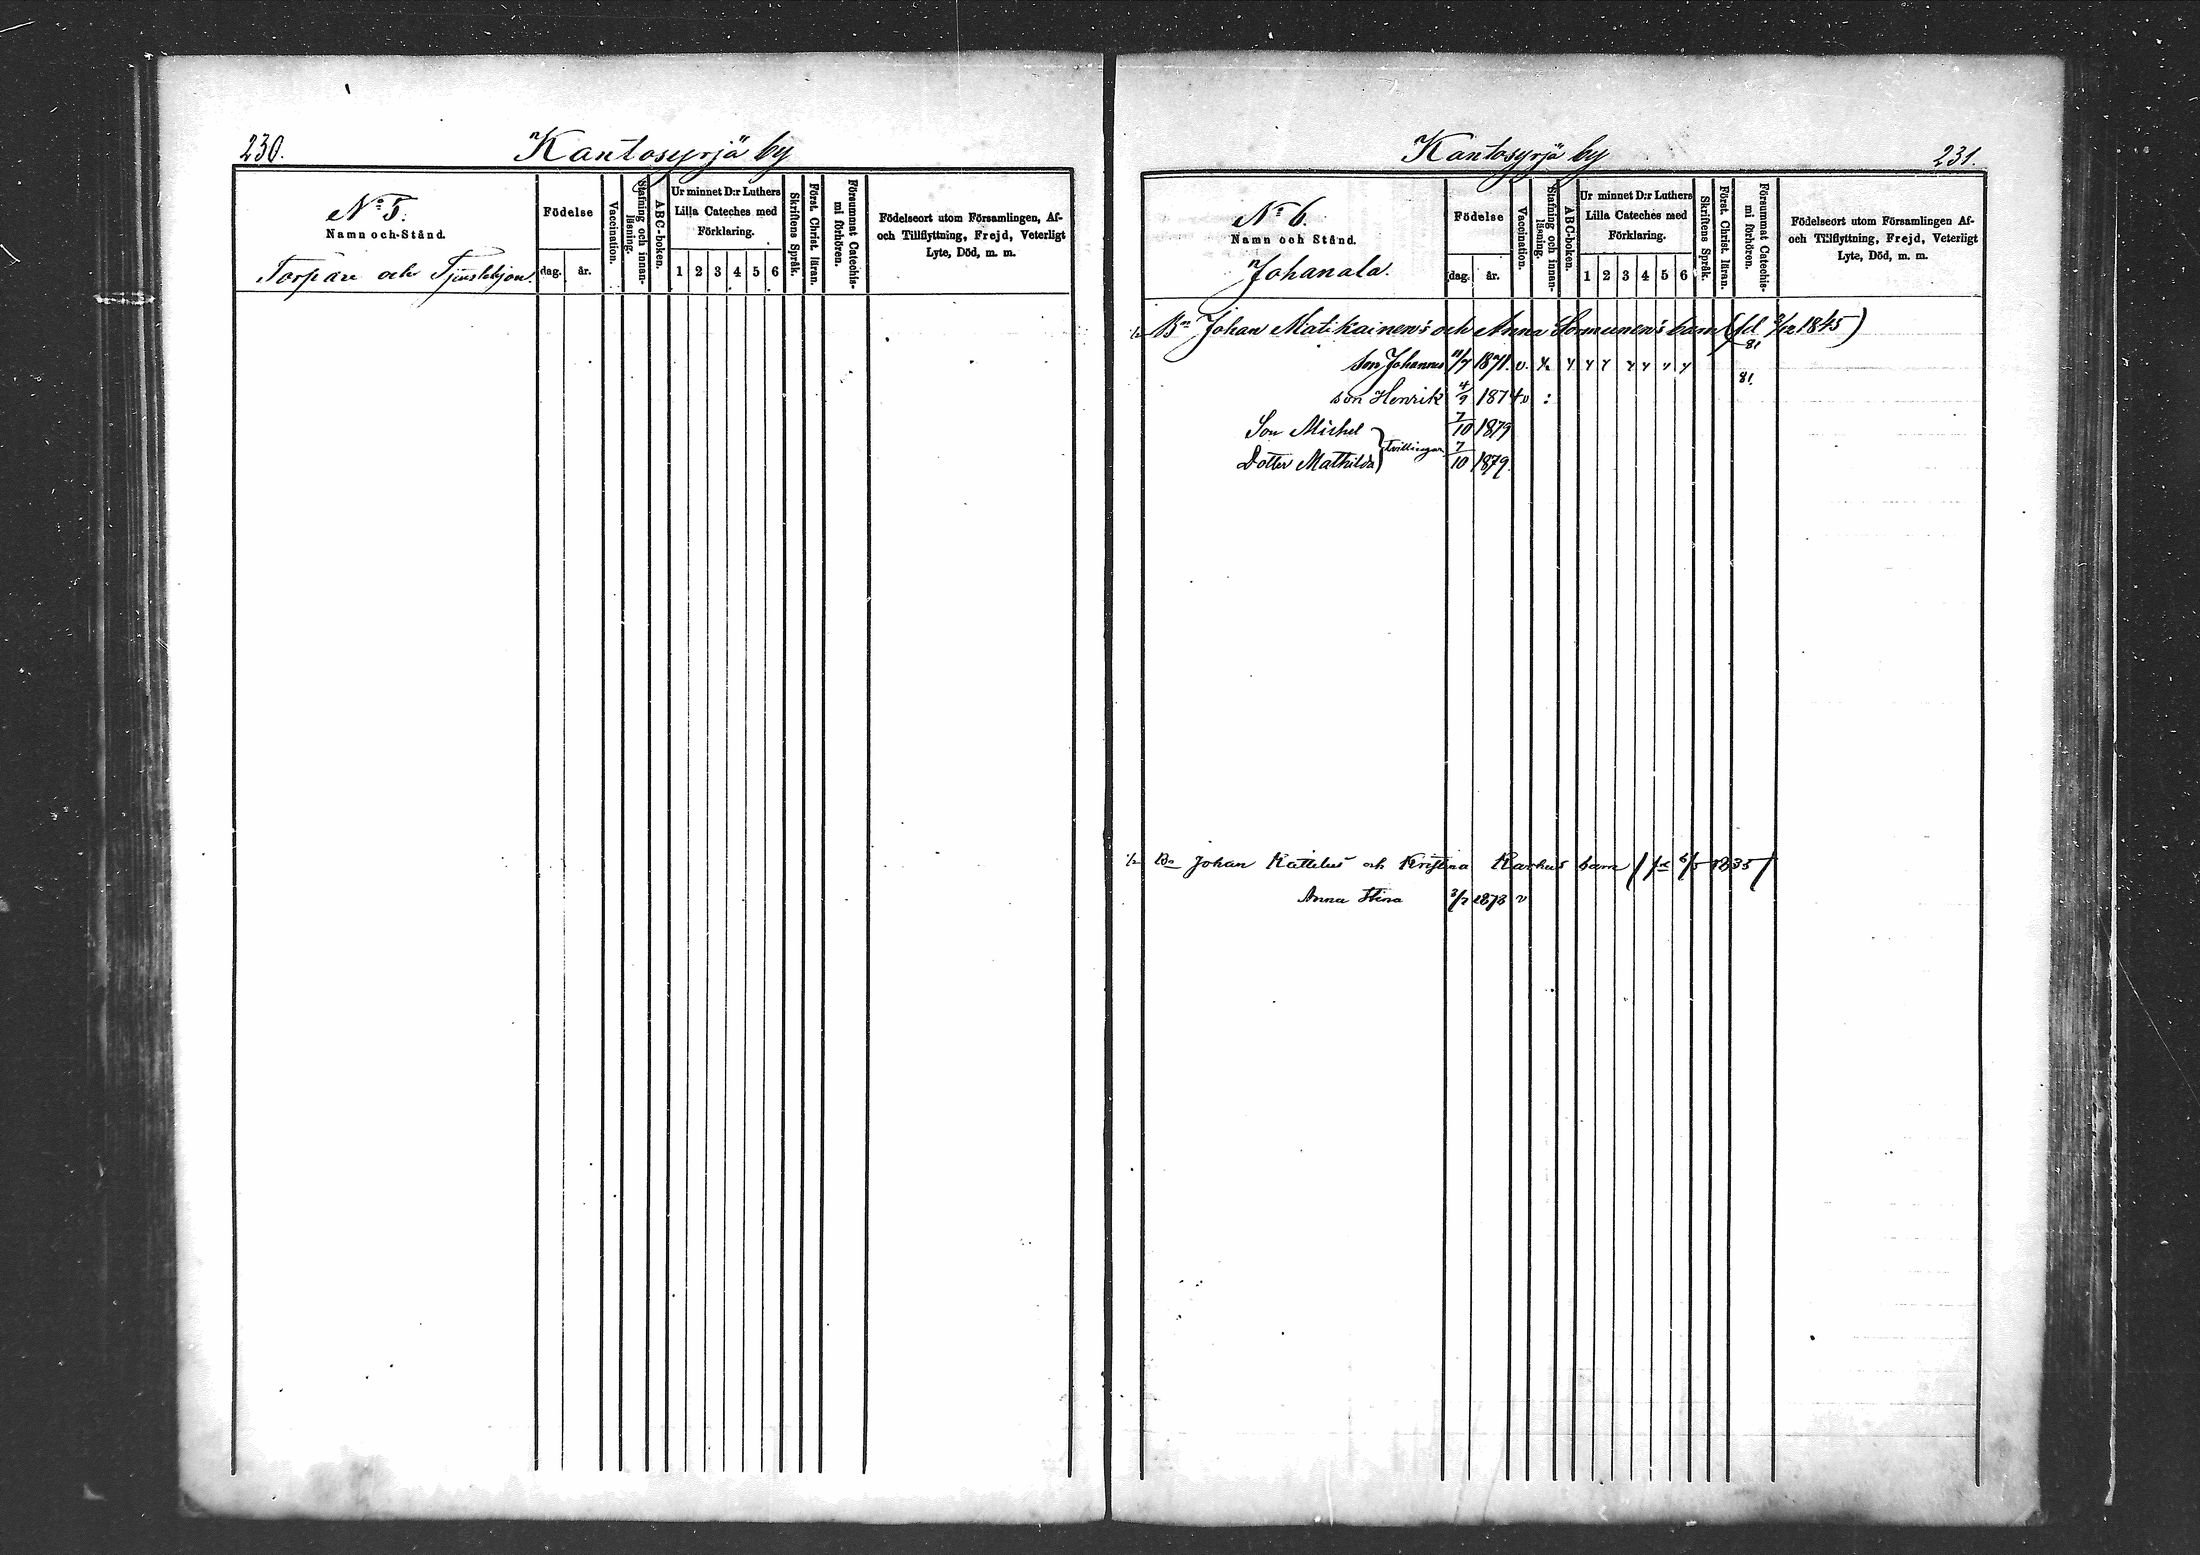 230. Kantosyrjä by
No 5.
Namn och Stånd.
Torpare och Tjenstehjon.
Födelse
dag. år.
Vaccination.
Stafning och innan-
läsning.
ABC-boken.
Ur minnet D:r Luthers
Lilla Cateches med
Förklaring.
1 2 3 4 5 6
Skriftens Språk.
Först. Christ. läran.
Försummat Catechis-
mi förhören.
Födelseort utom Församlingen, Af-
och Tillflyttning, Frejd, Veterligt
Lyte, Död, m. m.
Kantosyrjä by 231.
No 6.
Namn och Stånd.
Johanala.
Födelse
dag. år.
Vaccination.
Stafning och innan-
läsning.
ABC-boken.
Ur minnet D:r Luthers
Lilla Cateches med
Förklaring.
1 2 3 4 5 6
Skriftens Språk.
Först. Christ. läran.
Försummat Catechis-
mi förhören.
Födelseort utom Församlingen Af-
och Tillflyttning, Frejd, Veterligt
Lyte, Död, m. m.
1/2 Bn Johan Matikainen's och Anna Sormunen's barn (fd 3/12 1845)
81
son Johannes 11/7 1871. v. x
81.
son Henrik 4/9 1874 v :
Son Michel } tvillingar 7/10 1879
Dotter Mathilda 7/10 1879.
1/2 Bn Johan Kattelus och Kristina Karhus barn (fd 6/5 1835)
Anna Stina 3/7 1878 v